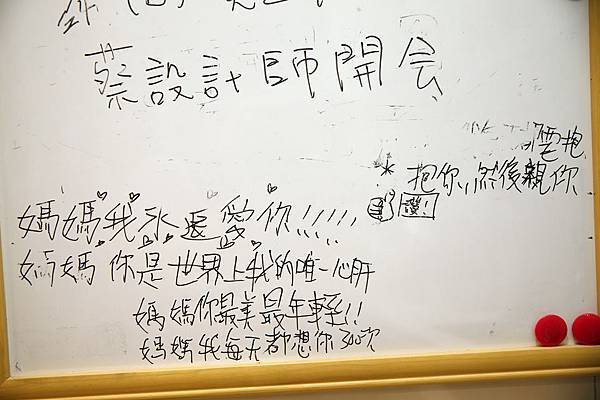 蔡設計師開会
要抱
* 抱你,然後親你
媽媽我永遠愛你!!!!!
媽媽你是世界上我的唯一心肝
媽媽你最美最年輕!!
媽媽我每天都想你300次